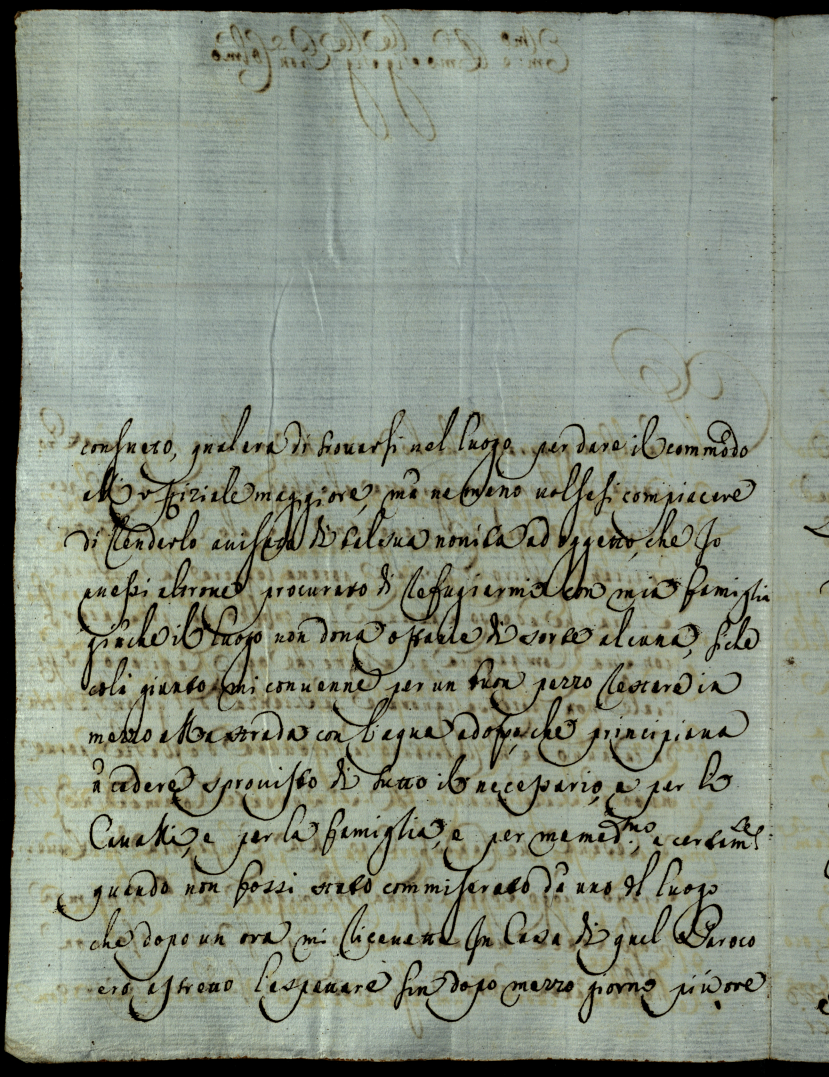 consueto, qual era di trovarsi nel luogo per dare il commodo
all offiziale maggiore, mà ne meno volsesi compiacere
di renderlo avisato di tal sua novità ad oggetto, che Io
avessi altrove procurato di reffugiarmi con mia famiglia
giache il luogo non dona ostarie di sorte alcuna, siche
colà giunto mi convenne per un buon pezzo restare in
mezzo alla strada con l'aqua adosso, che principiava
à cadere sprovisto di tutto il necessario, e per li
Cavalli, e per la famiglia, e per me med.mo, e certam.te
quando non fossi stato commiserato dà uno del luogo
che dopo un ora mi ricevette In Casa di quel Paroco
ero astretto l'aspettare sin dopo mezzo giorno più ore